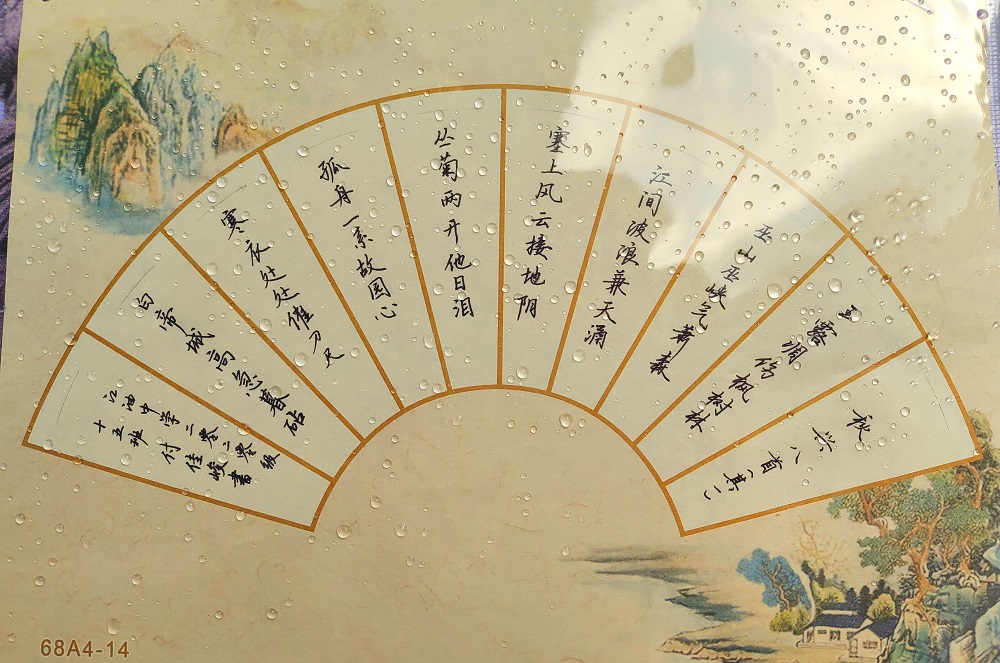 秋兴八首(其一)
玉露凋伤枫树林
巫山巫峡气萧森
江间波浪兼天涌
塞上风云接地阴
丛菊两开他日泪
孤舟一系故园心
寒衣处处催刀尺
白帝城高急暮砧
江油中学二零二零级
十五班 付佳峻書
68A4-14